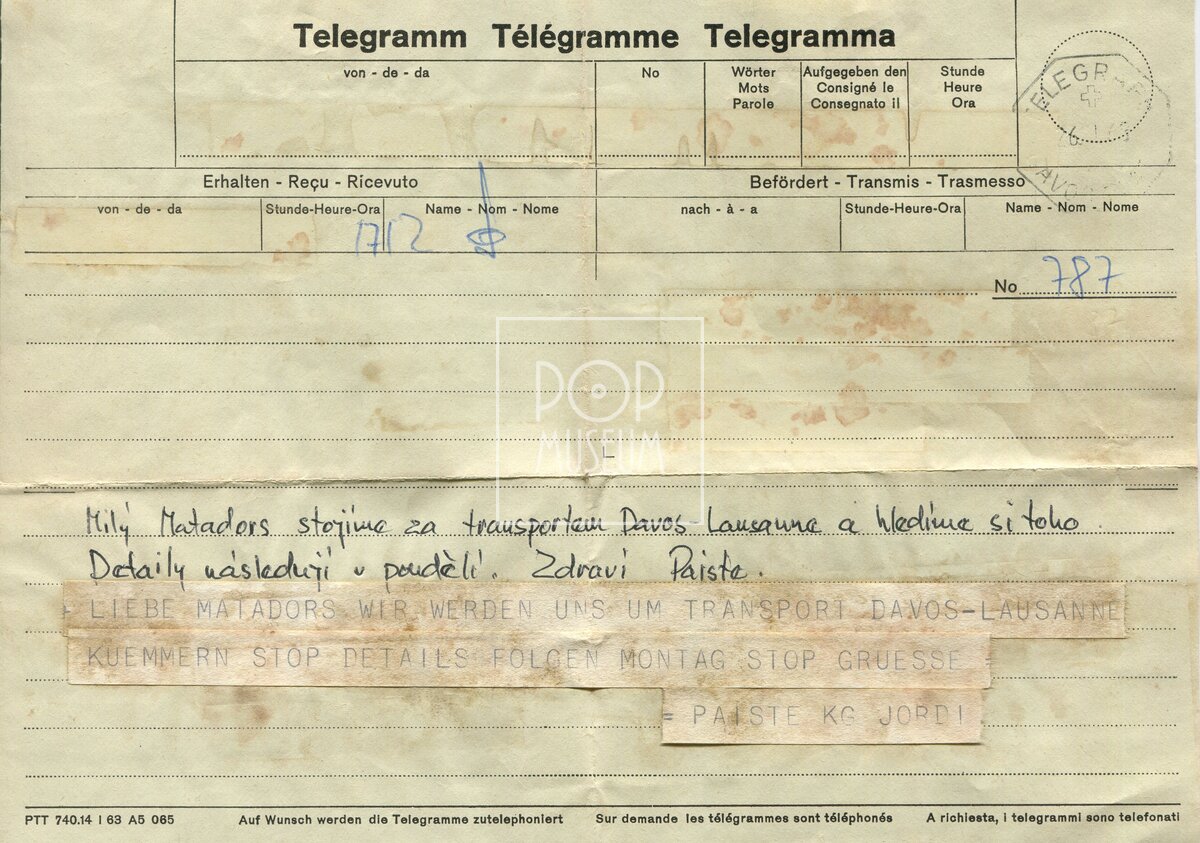 Telegramm Télégramme Telegramma
von - de - da
No
Wörter
Mots
Parole
Aufgegeben den
Consigné le
Consegnato il
Stunde
Heure
Ora
Erhalten - Reçu - Ricevuto
Befördert - Transmis - Trasmesso
von - de - da
Stunde-Heure-Ora
Name - Nom - Nome
nach - à - a
Stunde-Heure-Ora
Name - Nom - Nome
1712
No 787
POP
MUSEUM
Milý Matadors stojíme za transportem Davos-Lausanne a hledíme si toho.
Detaily následují v pondělí. Zdraví Paiste.
= LIEBE MATADORS WIR WERDEN UNS UM TRANSPORT DAVOS-LAUSANNE
KUEMMERN STOP DETAILS FOLGEN MONTAG STOP GRUESSE =
= PAISTE KG JORDI
PTT 740.14 I 63 A5 065
Auf Wunsch werden die Telegramme zutelephoniert
Sur demande les télégrammes sont téléphonés
A richiesta, i telegrammi sono telefonati